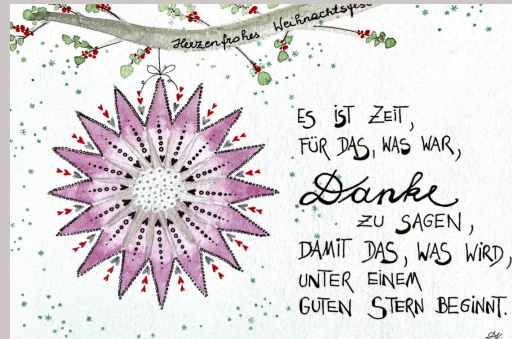 Herzenfrohes Weihnachtsfest
ES IST ZEIT,
FÜR DAS, WAS WAR,
Danke
ZU SAGEN,
DAMIT DAS, WAS WIRD,
UNTER EINEM
GUTEN STERN BEGINNT.